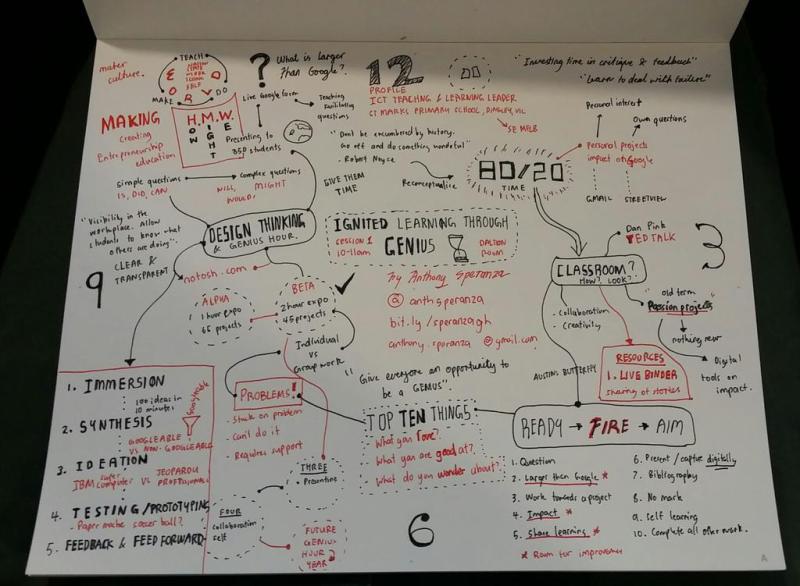 maker
culture.
TEACH
MAKE
DO
MAKING
creating
Entrepreneurship
education
H.M.W.
HOW
MIGHT
WE
?
What is larger
than Google?
Live Google form
Teaching
Facilitating
questions
Presenting to
350 students
simple questions
IS, DID, CAN
complex questions
WILL, MIGHT
WOULD
GIVE THEM
TIME
12
PROFILE
ICT TEACHING & LEARNING LEADER
ST MARKS PRIMARY SCHOOL, DINGLEY, VIC
SE MELB
"Don't be encumbered by history.
Go off and do something wonderful"
- Robert Noyce
Reconceptualise
"Investing time in critique & feedback"
"Learn to deal with failure"
80/20
TIME
Personal interest
Own questions
Personal projects
impact of Google
GMAIL
STREETVIEW
"Visibility in the
workplace. Allow
students to know what
others are doing".
9
CLEAR &
TRANSPARENT
DESIGN THINKING
& GENIUS HOUR.
notosh.com
ALPHA
1 hour expo
65 projects
BETA
2 hour expo
45 projects
Individual
vs
Group work
IGNITED LEARNING THROUGH
GENIUS
SESSION 1
10-11am
DALTON
ROOM
by Anthony Speranza
@anthsperanza
bit.ly/speranzagh
anthony.speranza @gmail.com
"Give everyone an opportunity to
be a GENIUS".
Dan Pink
TED TALK
3
CLASSROOM?
HOW? LOOK?
- Collaboration
- Creativity
"old term
Passion projects"
nothing new
Digital
tools on
impact.
RESOURCES
1. LIVE BINDER
sharing of stories
AUSTINS BUTTERFLY
1. IMMERSION
100 ideas in
10 minutes
2. SYNTHESIS
GOOGLEABLE
VS NON-GOOGLEABLE
3. IDEATION
IBM super computer VS JEOPARDY PROFESSIONALS
4. TESTING/PROTOTYPING
- Paper mache soccer ball?
5. FEEDBACK & FEED FORWARD
PROBLEMS!
- Stuck on problem
- Can't do it
- Requires support
THREE
FOUR
collaboration
self
FUTURE
GENIUS
HOUR
YEAR
TOP TEN THINGS
- What you love?
- What you are good at?
- What do you wonder about?
6
READY → FIRE → AIM
1. Question
2. Larger than Google *
3. Work towards a project
4. Impact *
5. Share learning *
* Room for improvement
6. Present / capture digitally
7. Bibliography
8. No mark
9. Self learning
10. Complete all other work.